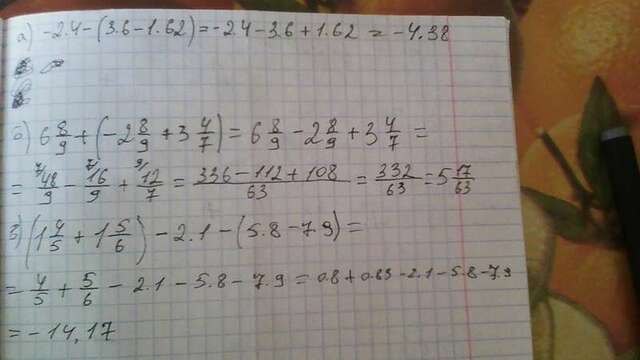 а) -2.4-(3.6-1.62)=-2.4-3.6+1.62 = -4.38
б) 6 8/9 + (-2 8/9 + 3 4/7) = 6 8/9 - 2 8/9 + 3 4/7 =
= 7/ 48/9 - 7/ 16/9 + 9/ 12/7 = (336-112+108)/63 = 332/63 = 5 17/63
в) (1 4/5 + 1 5/6) - 2.1 - (5.8-7.9) =
= 4/5 + 5/6 - 2.1 - 5.8 - 7.9 = 0.8+0.83-2.1-5.8-7.9
= -14,17